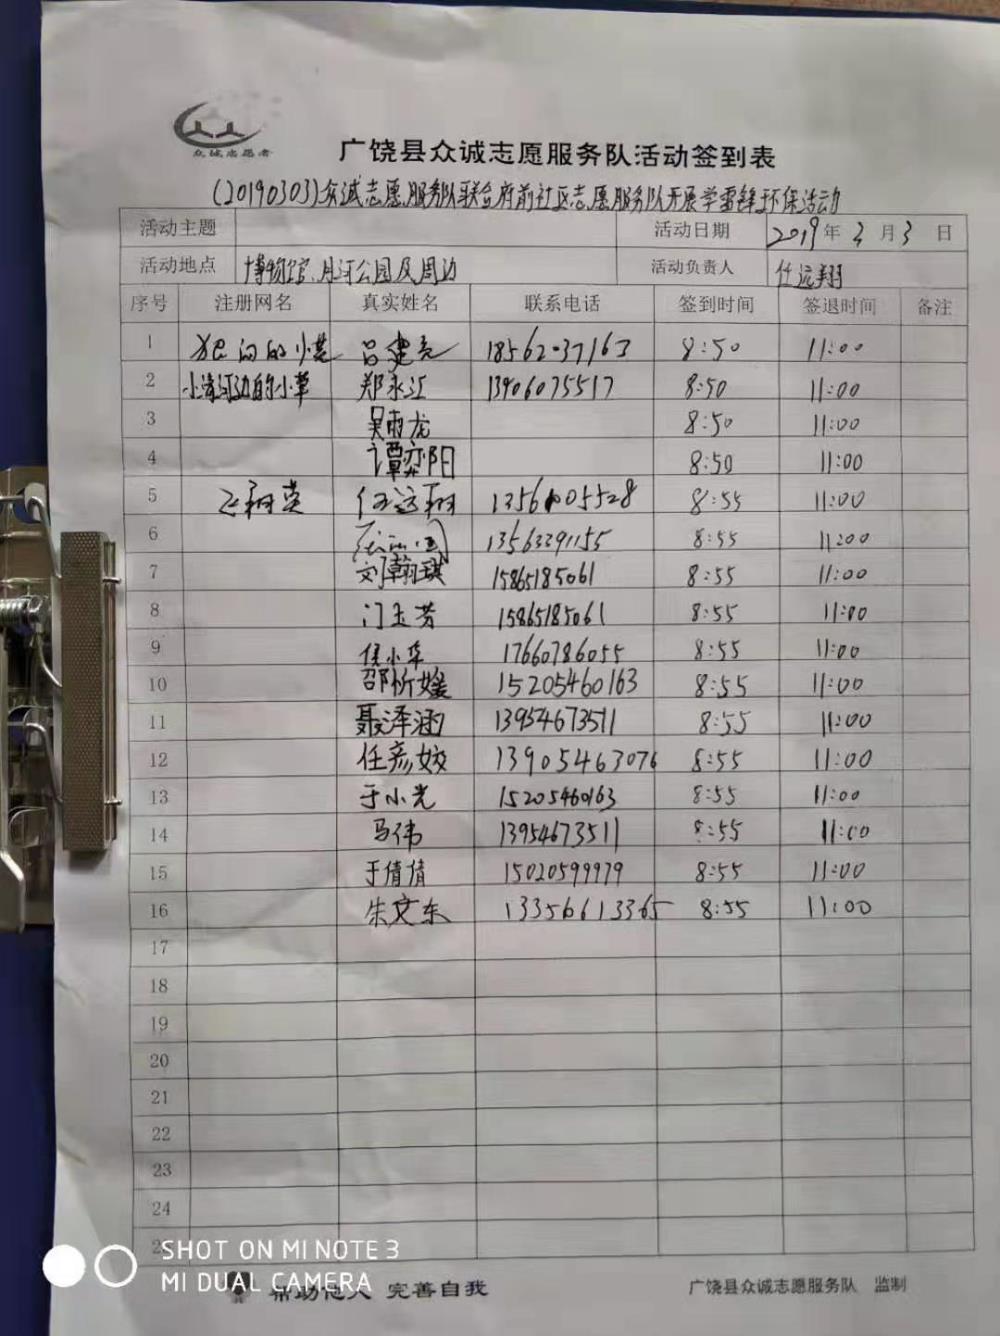 众诚志愿者
广饶县众诚志愿服务队活动签到表
(20190303)众诚志愿服务队联合府前社区志愿服务队开展学雷锋环保活动
活动主题 活动日期 2019年3月3日
活动地点 博物馆、月河公园及周边 活动负责人 任远翔
序号 注册网名 真实姓名 联系电话 签到时间 签退时间 备注
1 吕建亮 8:50 11:00
2 小清河边的小草 郑永江 13906075517 8:50 11:00
3 吴雨龙 8:50 11:00
4 谭弈阳 8:50 11:00
5 飞翔英 任远翔 8:55 11:00
6 13563291155 8:55 11:00
7 刘翰琪 15865185061 8:55 11:00
8 门玉芳 15865185061 8:55 11:00
9 侯小华 17660786055 8:55 11:00
10 邵忻媛 15205460163 8:55 11:00
11 聂泽涵 13954673511 8:55 11:00
12 任彦姣 13905463076 8:55 11:00
13 于小光 15205460163 8:55 11:00
14 马伟 13954673511 8:55 11:00
15 于倩倩 15020599979 8:55 11:00
16 朱文东 13356613365 8:55 11:00
17
18
19
20
21
22
23
24
SHOT ON MI NOTE 3
MI DUAL CAMERA
帮助他人 完善自我 广饶县众诚志愿服务队 监制